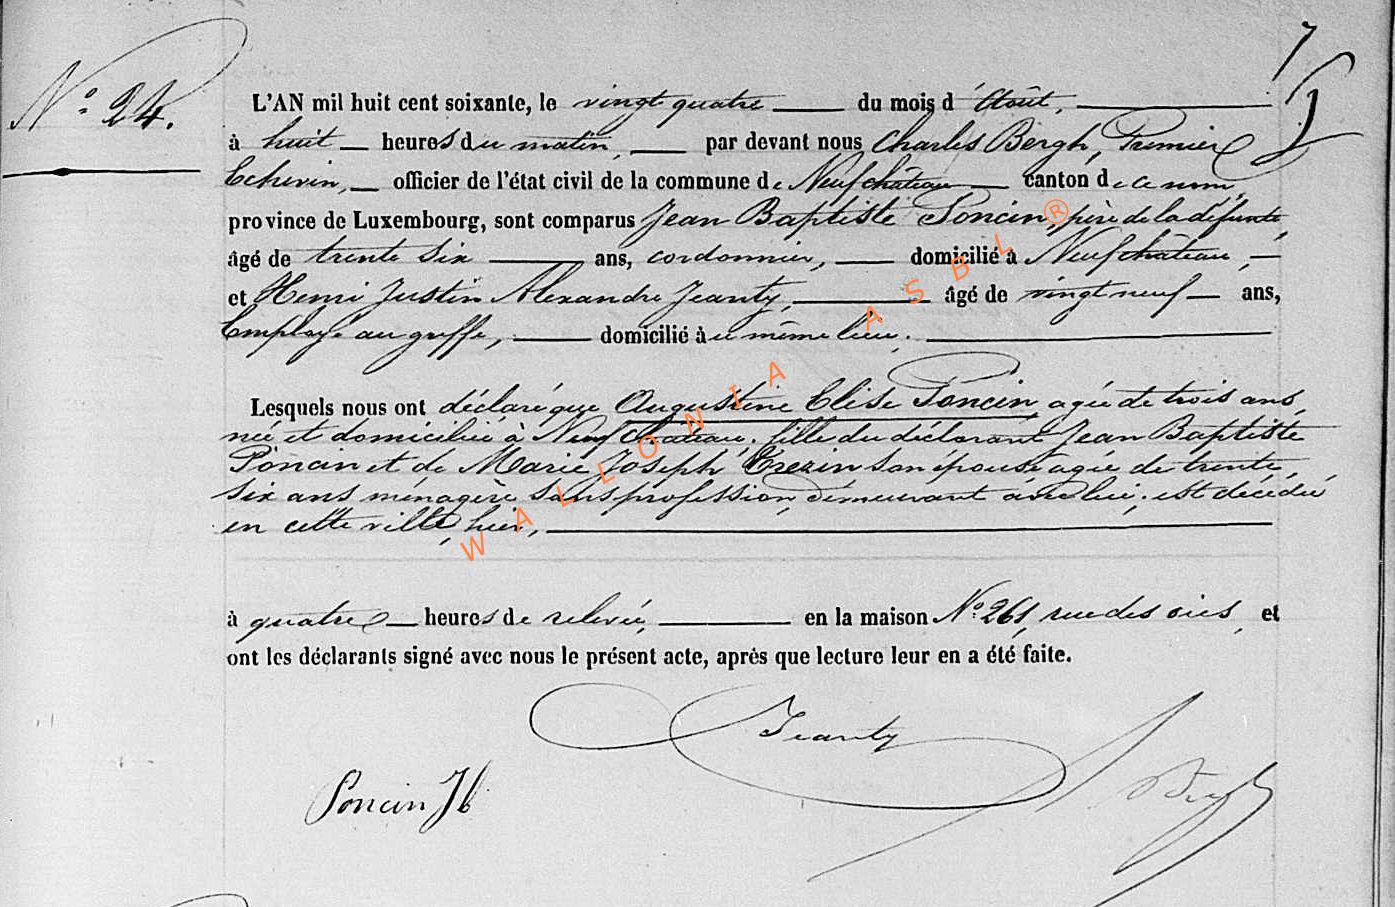 7
N° 24.
L'AN mil huit cent soixante, le vingt quatre du mois d'Août,
à huit heures du matin, par devant nous Charles Bergh, Premier
Echevin, officier de l'état civil de la commune de Neufchâteau canton de ce nom,
province de Luxembourg, sont comparus Jean Baptiste Poncin, père de la défunte,
âgé de trente six ans, cordonnier, domicilié à Neufchâteau,
et Henri Justin Alexandre Jeanty, âgé de vingt neuf ans,
Employé au greffe, domicilié au même lieu.
Lesquels nous ont déclaré que Augustine Elise Poncin agée de trois ans,
née et domiciliée à Neufchâteau, fille du déclarant Jean Baptiste
Poncin et de Marie Joseph Crezin son épouse agée de trente
six ans ménagère sans profession, demeurant avec lui, est décédée
en cette ville, hier,
à quatre heures de relevée, en la maison N° 261, rue des oies, et
ont les déclarants signé avec nous le présent acte, après que lecture leur en a été faite.
Jeanty
Poncin Jb
Bergh
WALLONIA ASBL ®